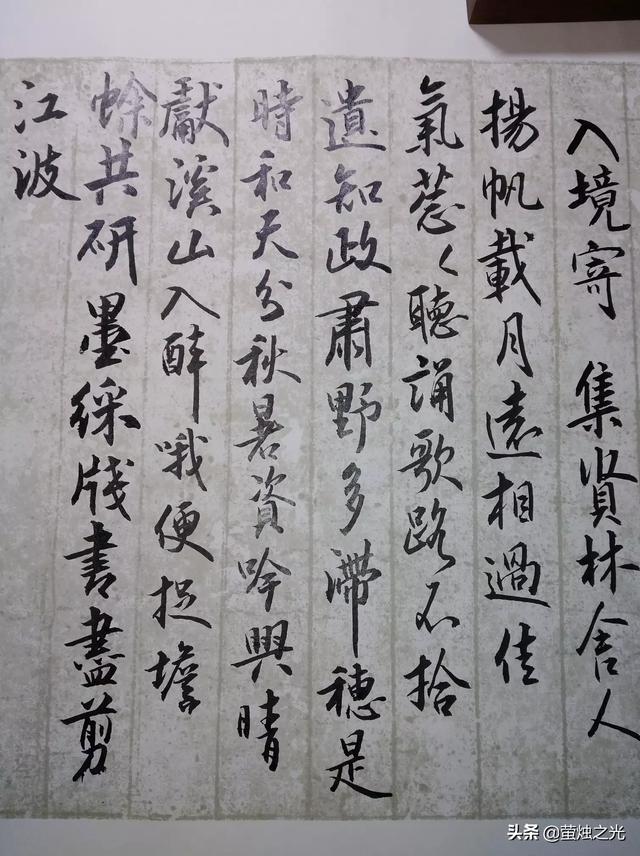 入境寄集賢林舍人
揚帆載月遠相過佳
氣蔥〱聽誦歌路不拾
遺知政肅野多滯穗是
時和天分秋暑資吟興晴
獻溪山入醉哦便捉蟾
蜍共研墨綵牋書盡剪
江波
头条@萤烛之光